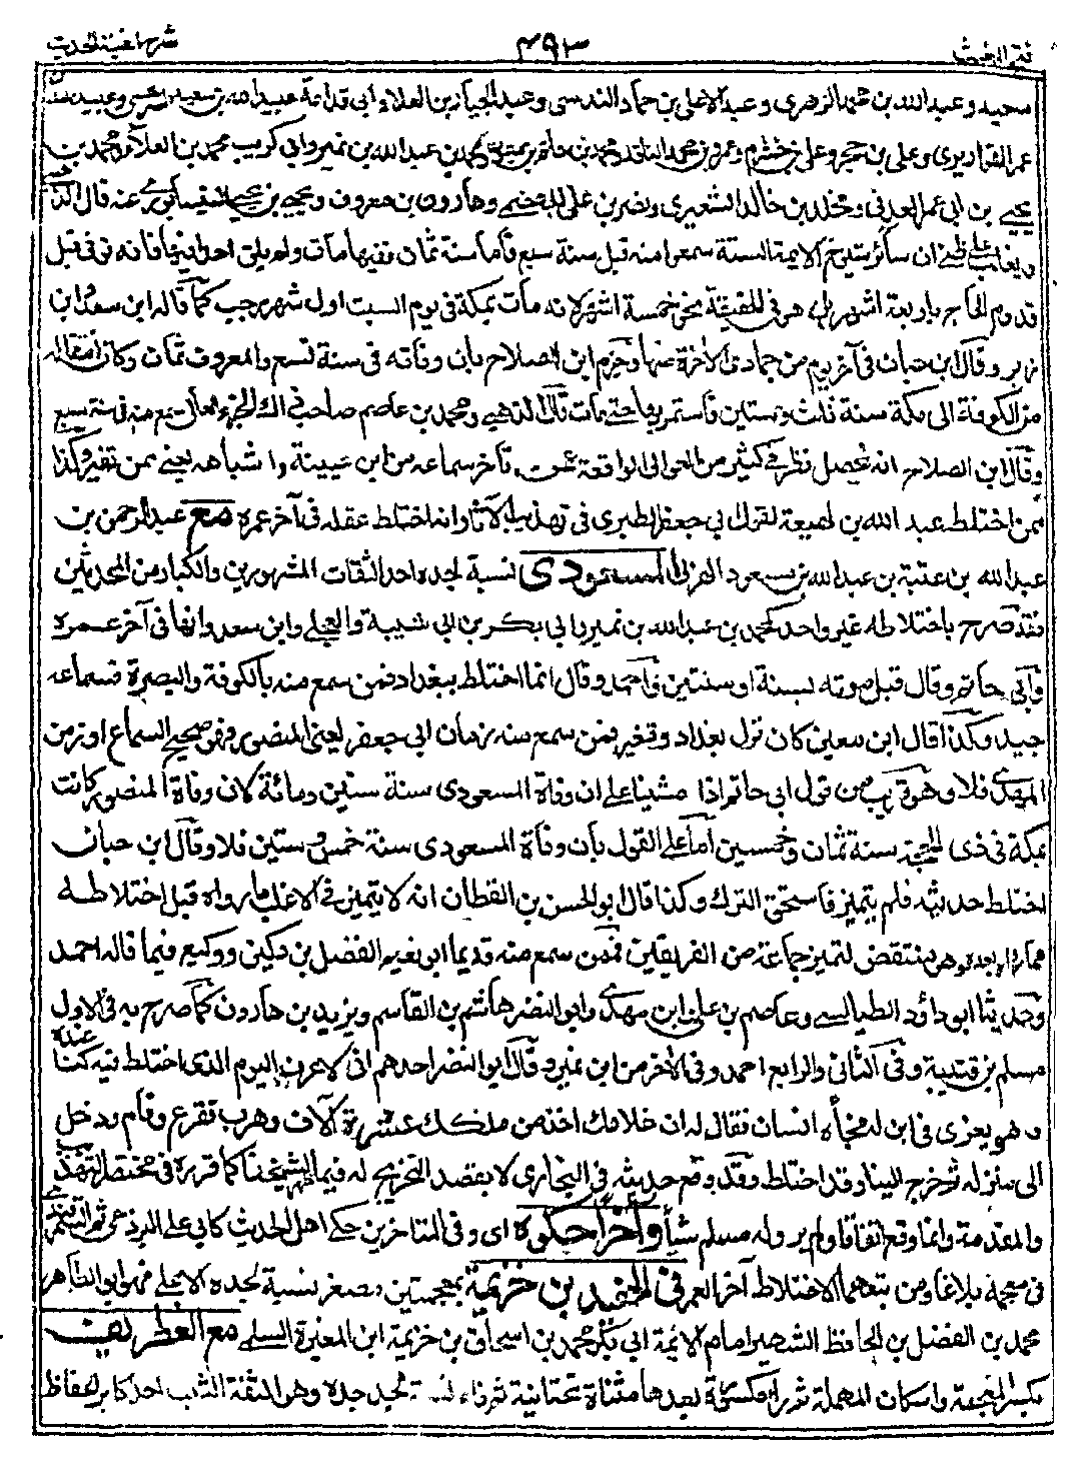 فتح المغيث ٤٩٣ شرح الفية الحديث
سعيد وعبد الله بن محمد الزهري وعبد الاعلى بن حماد النرسي وعبد الجبار بن العلاء وابي قدامة عبيد الله بن سعيد السرخسي وعبيد الله بن
عمر القواريري وعلي بن حجر وعلي بن خشرم وعمرو بن محمد الناقد ومحمد بن حاتم بن ميمون ومحمد بن عبد الله بن نمير وابي كريب محمد بن العلاء ومحمد بن
يحيى بن ابي عمر العدني ومخلد بن خالد الشعيري ونصر بن علي الجهضمي وهارون بن معروف ويحيى بن يحيى النيسابوري عنه قال الذهبي
ويغلب على ظني ان سائر شيوخ الايمة الستة سمعوا منه قبل سنة سبع فأما سنة ثمان ففيها مات ولم يلق احدا فيها فانه توفي قبل
قدوم الحاج باربعة اشهر بل هو في الحقيقة نحو خمسة اشهر لانه مات بمكة في يوم السبت اول شهر رجب كما قاله ابن سعد وابن
زبر وقال ابن حبان في آخر يوم من جمادى الآخرة منها وجزم ابن الصلاح بان وفاته في سنة تسع والمعروف ثمان وكان انتقاله
من الكوفة الى مكة سنة ثلث وستين فاستمر بها حتى مات قال الذهبي ومحمد بن عاصم صاحب ذاك الجزء العالي سمع منه في سنة سبع
وقال ابن الصلاح انه يحصل نظر في كثير من العوالي الواقعة عمن تأخر سماعه من ابن عيينة واشباهه يعني ممن تغير وكذا
ممن اختلط عبد الله بن لهيعة لقول ابي جعفر الطبري في تهذيب الآثار انه اختلط عقله في آخر عمره مع عبد الرحمن بن
عبد الله بن عتبة بن عبد الله بن مسعود الهزلي المسعودي نسبة لجده احد الثقات المشهورين والكبار من المحدثين
فقد صرح باختلاطه غير واحد كمحمد بن عبد الله بن نمير وابي بكر بن ابي شيبة والعجلي وابن سعد وانها في آخر عمره
وابي حاتم وقال قبل موته بسنة او سنتين واحمد وقال انما اختلط ببغداد فمن سمع منه بالكوفة والبصرة فسماعه
جيد وكذا قال ابن معين كان نزل بغداد وتغير فمن سمع منه زمان ابي جعفر يعني المنصور فهو صحيح السماع او زمن
المهدي فلا وهو قريب من قول ابي حاتم اذا مشينا على ان وفاة المسعودي سنة ستين ومائة لان وفاة المنصور كانت
بمكة في ذي الحجة سنة ثمان وخمسين أما على القول بأن وفاة المسعودي سنة خمس وستين فلا وقال ابن حبان
اختلط حديثه فلم يتميز فاستحق الترك وكذا قال ابو الحسن بن القطان انه لا يتميز في الاغلب ما رواه قبل اختلاطه
مما رواه بعده وهو منتقض لتميز جماعة من الفريقين فممن سمع منه قديما ابو نعيم الفضل بن دكين ووكيع فيما قاله احمد
وحديثا ابو داؤد الطيالسي وعاصم بن علي وابن مهدي وابو النضر هاشم بن القاسم ويزيد بن هارون كما صرح به في الاول
مسلم بن قتيبة وفي الثاني والرابع احمد وفي الآخر من ابن نمير وقال ابو النضر احدهم اني لاعرف اليوم الذي اختلط فيه كنا عنده
وهو يعزى في ابن له فجاءه انسان فقال له ان غلامك اخذ من ملكك عشرة آلاف وهرب ففزع وقام ودخل
الى منزله ثم خرج الينا وقد اختلط وقد وقع حديثه في البخاري لا بقصد التخريج له فيما ظهر لشيخنا كما قرره في مختصر التهذيب
والمقدمة وانما وقع اتفاقا ولم يرو له مسلم شيأ وآخرا حكوه اى وفي المتاخرين حكى اهل الحديث كابي علي البرذعي ثم السمرقندي
في معجمه بلاغا ومن تبعهما الاختلاط آخر العمر في الحفيد بن خزيمة بمعجمتين مصغر نسبة لجده الاعلى فهو ابو الطاهر
محمد بن الفضل بن الحافظ الشهير امام الائمة ابي بكر محمد بن اسحاق بن خزيمة ابن المغيرة السلمي مع الغطريفي
بكسر المعجمة واسكان المهملة ثم راء مكسورة بعدها مثناة تحتانية ثم فاء نسبة لجد جده وهو الثقة الثبت احد اكابر الحفاظ